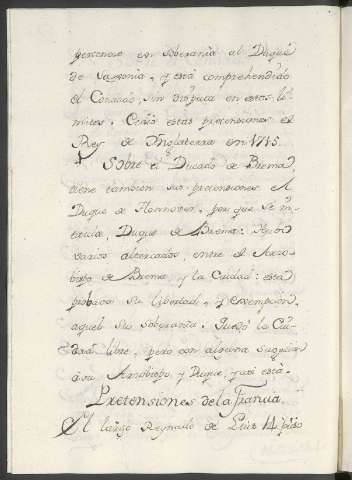 pertenece en soberania al Duque
de Saxonia, y está comprehendido
el Condado, sin disputa en estos li-
mites. Cedió estas pretensiones el
Rey de Ynglaterra en 1715.
Sobre el Ducado de Brema
tiene tambien sus pretensiones el
Duque de Hannover, por que se in-
titula, Duque de Brema. Hubo
varios altercados, entre el Arzo-
bispo de Brema, y la Ciudad: esta
probava su libertad, y exempcion,
aquel su soberania. Quedó la Ciu-
dad libre, pero con alguna sugecion
a su Arzobispo, y Duque, y asi está.
Pretensiones de la Francia.
El largo Reynado de Luis 14 hizo